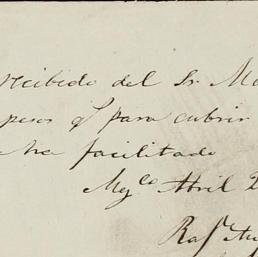 recibido del Sr. Ma
pesos q.e para cubrir
ha facilitado
Abril 2
Raf.l